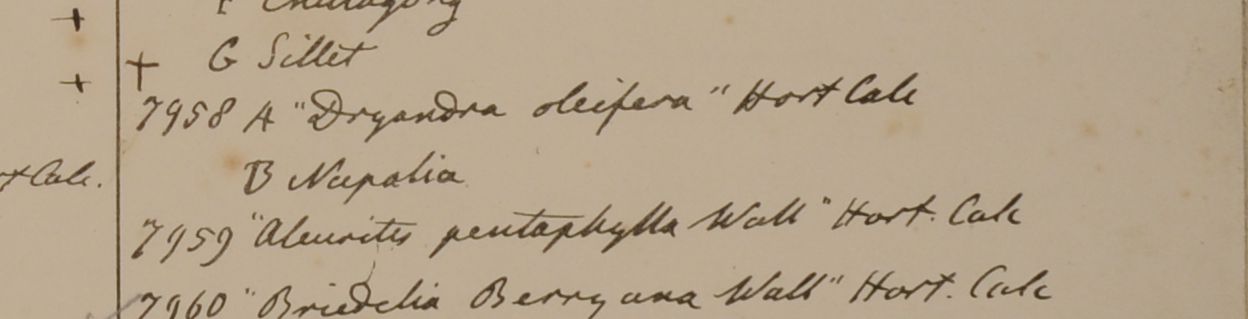 F Chittagong
+ G Sillet
7958 A "Dryandra oleifera" Hort Calc
B Napalia
7959 "Aleurites pentaphylla Wall" Hort. Calc
7960 "Briedelia Berryana Wall" Hort. Calc